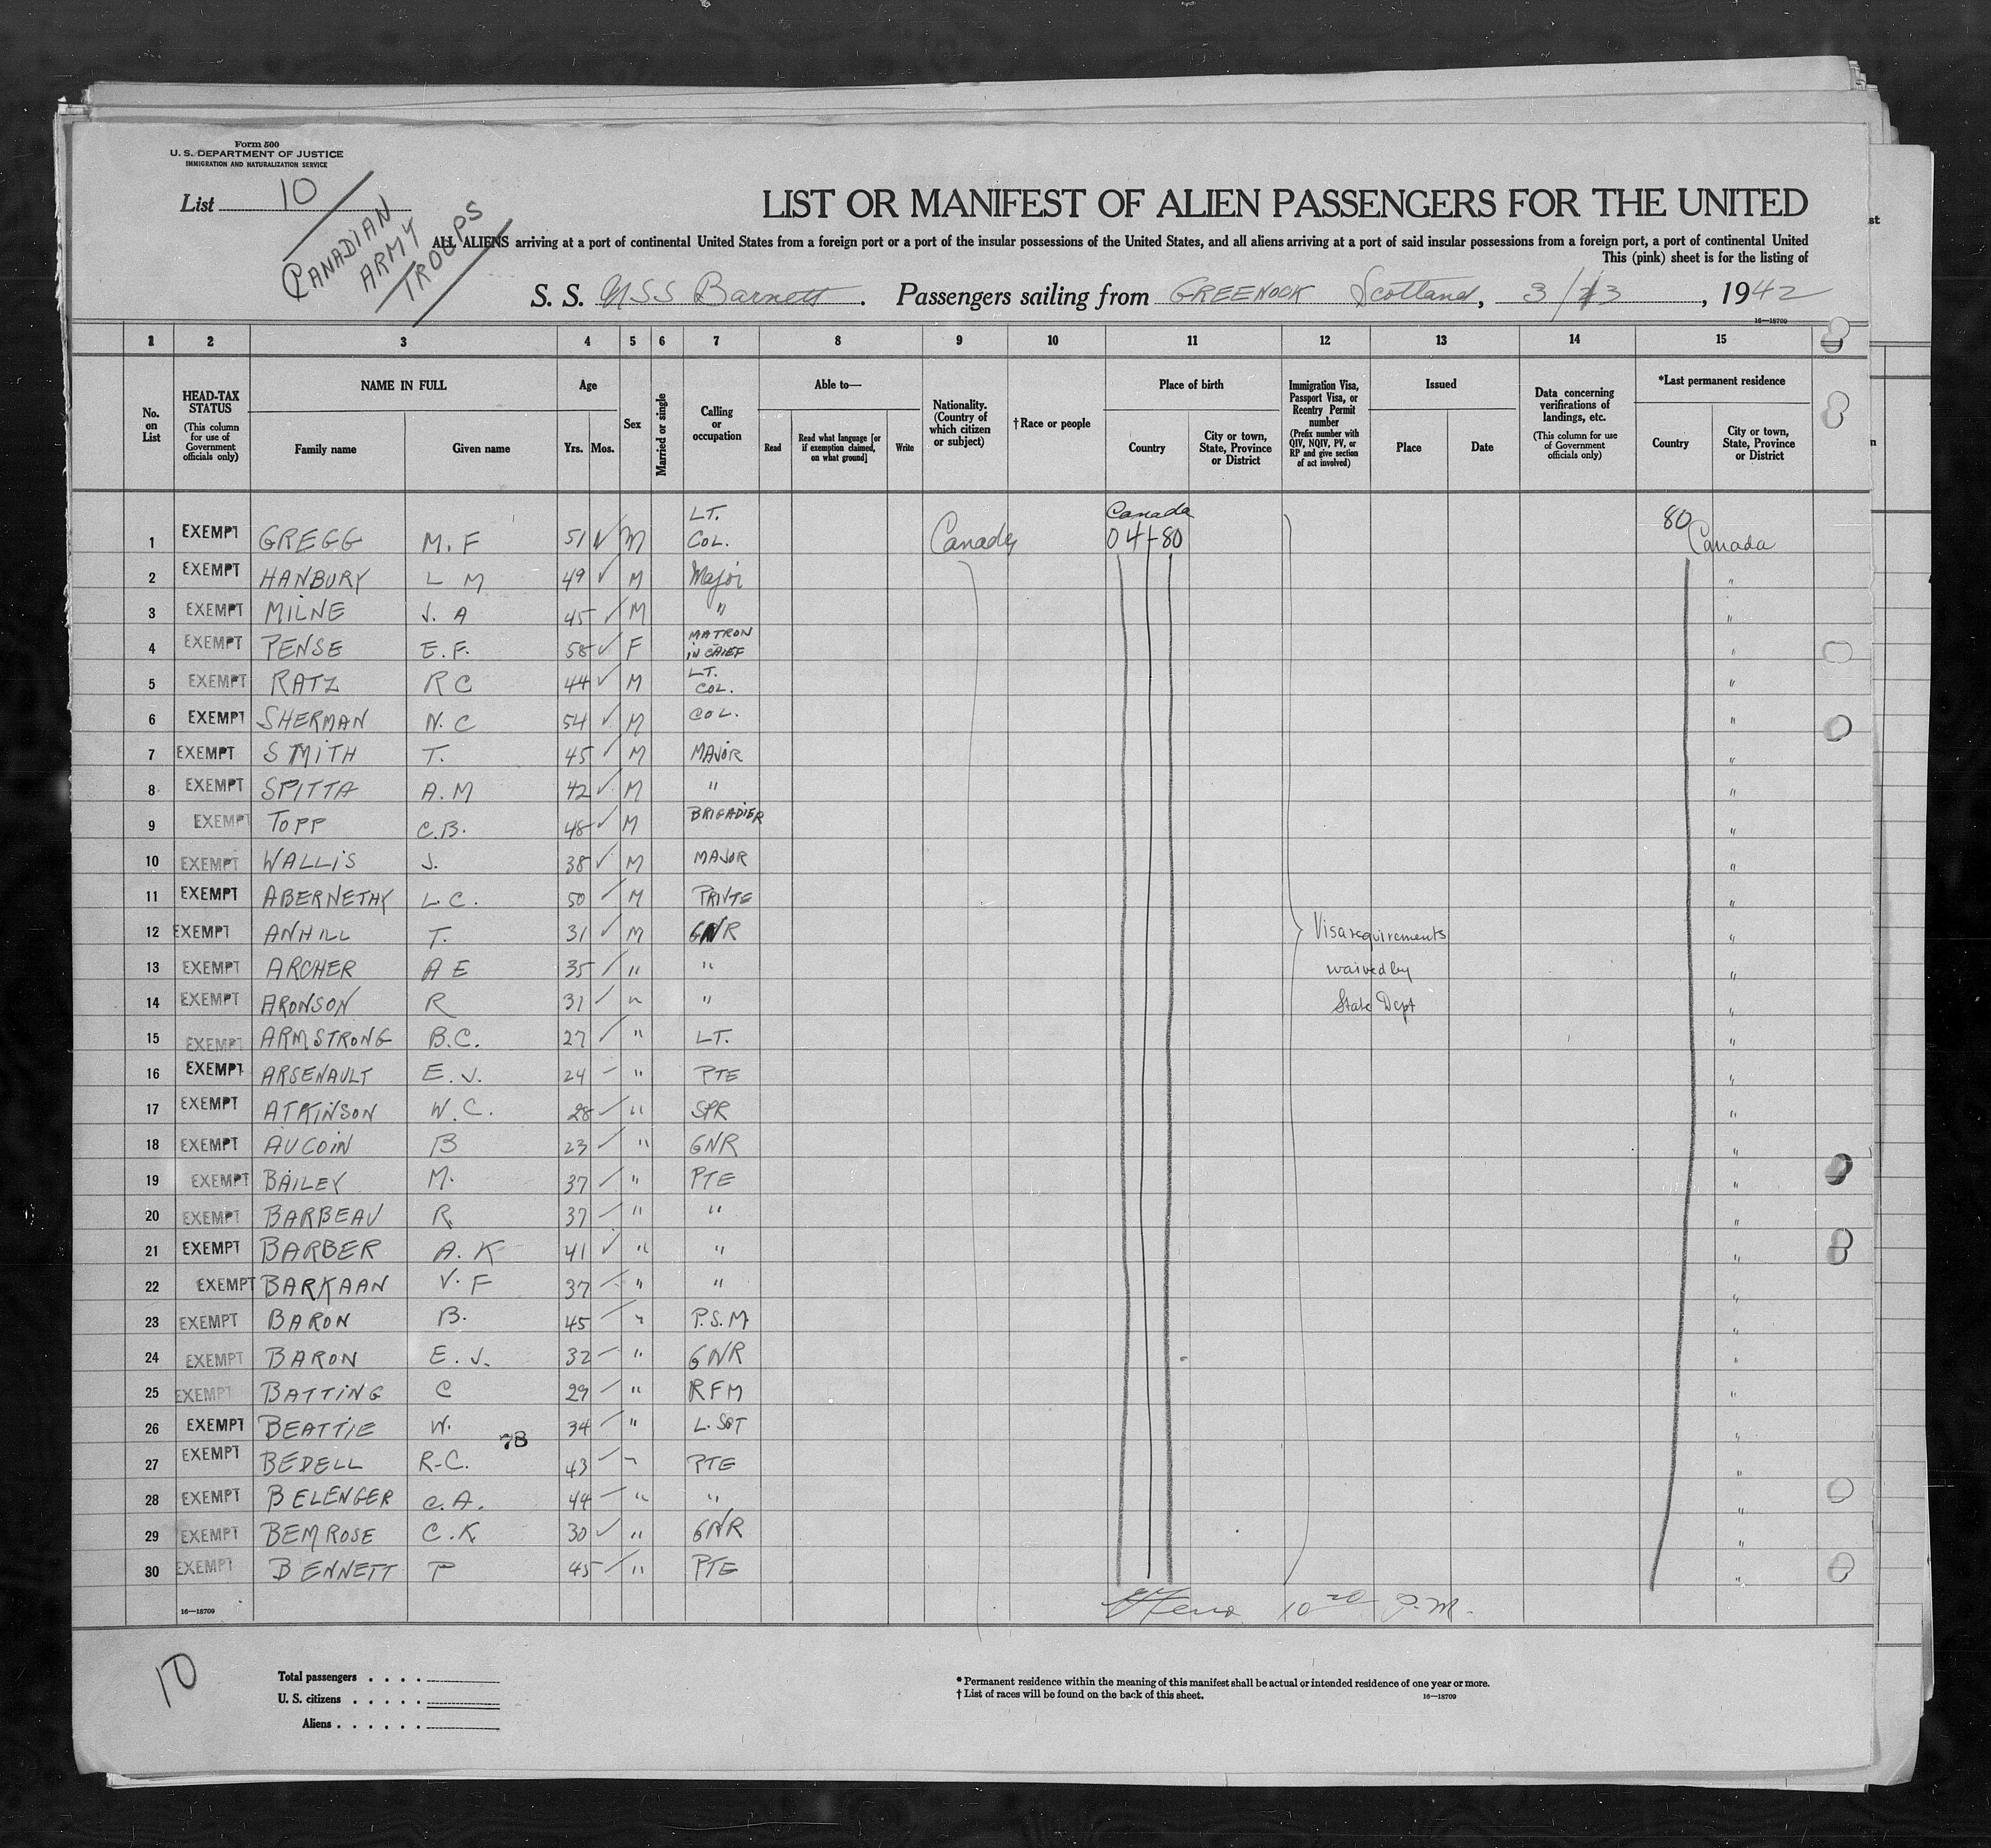 Form 500
U. S. DEPARTMENT OF JUSTICE
IMMIGRATION AND NATURALIZATION SERVICE
List 10
CANADIAN
ARMY
TROOPS
LIST OR MANIFEST OF ALIEN PASSENGERS FOR THE UNITED
ALL ALIENS arriving at a port of continental United States from a foreign port or a port of the insular possessions of the United States, and all aliens arriving at a port of said insular possessions from a foreign port, a port of continental United
This (pink) sheet is for the listing of
S. S. USS Barnett. Passengers sailing from GREENOCK Scotland, 3/13, 1942
16—18709
1 2 3 4 5 6 7 8 9 10 11 12 13 14 15
No. on List
HEAD-TAX STATUS (This column for use of Government officials only)
NAME IN FULL
Family name Given name
Age
Yrs. Mos.
Sex
Married or single
Calling or occupation
Able to—
Read Read what language [or if exemption claimed, on what ground] Write
Nationality. (Country of which citizen or subject)
†Race or people
Place of birth
Country City or town, State, Province or District
Immigration Visa, Passport Visa, or Reentry Permit number (Prefix number with QIV, NQIV, PV, or RP and give section of act involved)
Issued
Place Date
Data concerning verifications of landings, etc. (This column for use of Government officials only)
*Last permanent residence
Country City or town, State, Province or District
1 EXEMPT GREGG M. F 51 ✓ M LT. COL. Canada Canada 04-80 80 Canada
2 EXEMPT HANBURY L M 49 ✓ M Major "
3 EXEMPT MILNE J. A 45 ✓ M " "
4 EXEMPT PENSE E. F. 58 ✓ F MATRON IN CHIEF "
5 EXEMPT RATZ R C 44 ✓ M LT. COL. "
6 EXEMPT SHERMAN N. C 54 ✓ M COL. "
7 EXEMPT SMITH T. 45 ✓ M MAJOR "
8 EXEMPT SPITTA A. M 42 ✓ M " "
9 EXEMPT TOPP C.B. 48 ✓ M BRIGADIER "
10 EXEMPT WALLIS J. 38 ✓ M MAJOR "
11 EXEMPT ABERNETHY L. C. 50 ✓ M PRIVTE "
12 EXEMPT ANHILL T. 31 ✓ M GNR Visa requirements "
13 EXEMPT ARCHER A E 35 ✓ " " waived by "
14 EXEMPT ARONSON R 31 ✓ " " State Dept "
15 EXEMPT ARMSTRONG B.C. 27 ✓ " LT. "
16 EXEMPT ARSENAULT E. J. 24 ✓ " PTE "
17 EXEMPT ATKINSON W. C. 28 ✓ " SPR "
18 EXEMPT AUCOIN B 23 ✓ " GNR "
19 EXEMPT BAILEY M. 37 ✓ " PTE "
20 EXEMPT BARBEAU R 37 ✓ " " "
21 EXEMPT BARBER A. K 41 ✓ " " "
22 EXEMPT BARKAAN V. F 37 ✓ " " "
23 EXEMPT BARON B. 45 ✓ " P.S.M "
24 EXEMPT BARON E. J. 32 ✓ " GNR "
25 EXEMPT BATTING C 29 ✓ " RFM "
26 EXEMPT BEATTIE W. 34 ✓ " L. SGT "
78
27 EXEMPT BEDELL R-C. 43 ✓ " PTE "
28 EXEMPT BELENGER C. A. 44 ✓ " " "
29 EXEMPT BEMROSE C. K 30 ✓ " GNR "
30 EXEMPT BENNETT P 45 ✓ " PTE "
16—18709
10 20 P.M.
10
Total passengers . . . .
U. S. citizens . . . . .
Aliens . . . . . .
* Permanent residence within the meaning of this manifest shall be actual or intended residence of one year or more.
† List of races will be found on the back of this sheet.
16—18709